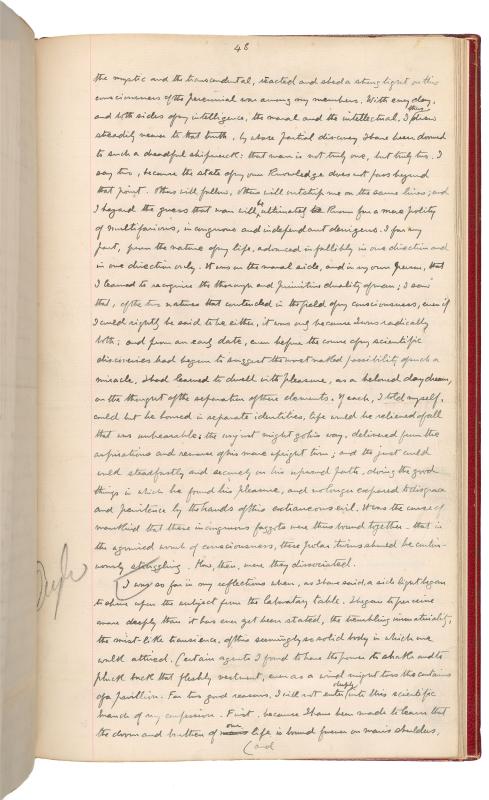 48
the mystic and the transcendental, reacted and shed a strong light on this
consciousness of the perennial war among my members. With every day,
and both sides of my intelligence, the moral and the intellectual, I thus drew
steadily nearer to that truth, by whose partial discovery I have been doomed
to such a dreadful shipwreck: that man is not truly one, but truly two. I
say two, because the state of my own knowledge does not pass beyond
that point. Others will follow, others will outstrip me on the same lines; and
I hazard the guess that man will be ultimately known for a mere polity
of multifarious, incongruous and independent denizens. I for my
part, from the nature of my life, advanced infallibly in one direction and
in one direction only. It was on the moral side, and in my own person, that
I learned to recognise the thorough and primitive duality of man; I saw
that, of the two natures that contended in the field of my consciousness, even if
I could rightly be said to be either, it was only because I was radically
both; and from an early date, even before the course of my scientific
discoveries had begun to suggest the most naked possibility of such a
miracle, I had learned to dwell with pleasure, as a beloved daydream,
on the thought of the separation of these elements. If each, I told myself,
could but be housed in separate identities, life would be relieved of all
that was unbearable; the unjust might go his way, delivered from the
aspirations and remorse of his more upright twin; and the just could
walk steadfastly and securely on his upward path, doing the good
things in which he found his pleasure, and no longer exposed to disgrace
and penitence by the hands of this extraneous evil. It was the curse of
mankind that these incongruous faggots were thus bound together - that in
the agonised womb of consciousness, these polar twins should be contin-
uously struggling. How, then, were they dissociated.
I was so far in my reflections when, as I have said, a side light began
to shine upon the subject from the laboratory table. I began to perceive
more deeply than it has ever yet been stated, the trembling immateriality,
the mist-like transience, of this seemingly so solid body in which we
walk attired. Certain agents I found to have the power to shake and to
pluck back that fleshly vestment, even as a wind might toss the curtains
of a pavilion. For two good reasons, I will not enter deeply into this scientific
branch of my confession. First, because I have been made to learn that
the doom and burthen of our life is bound forever on man's shoulders,
(and